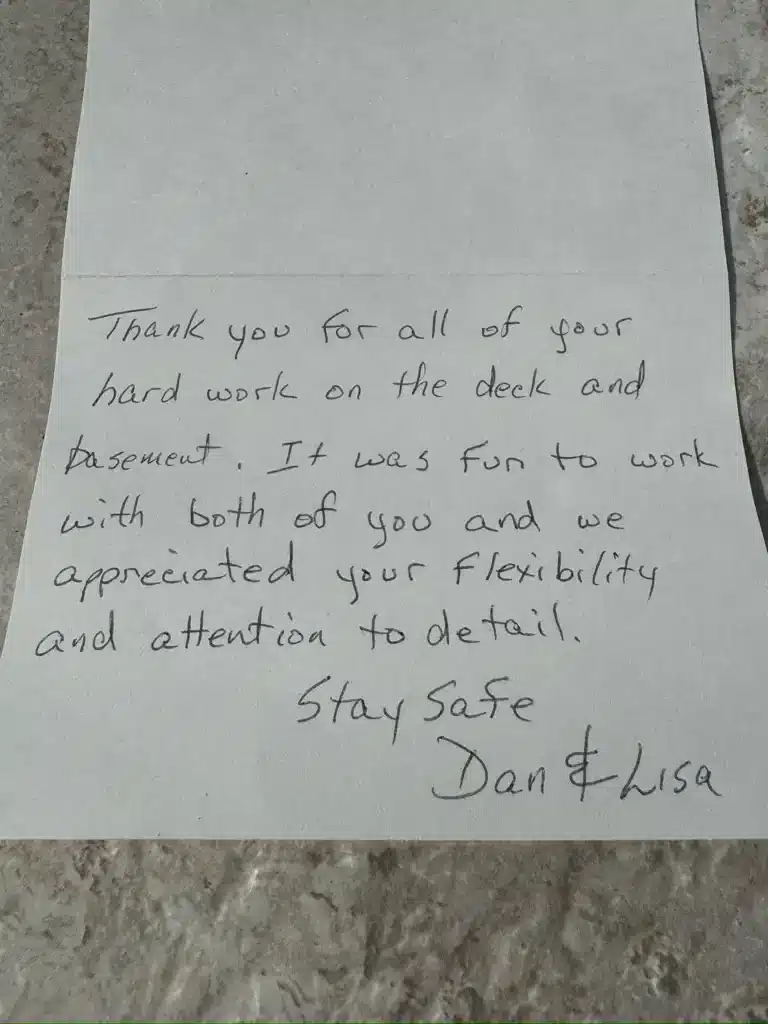 Thank you for all of your
hard work on the deck and
basement. It was fun to work
with both of you and we
appreciated your flexibility
and attention to detail.
Stay Safe
Dan & Lisa